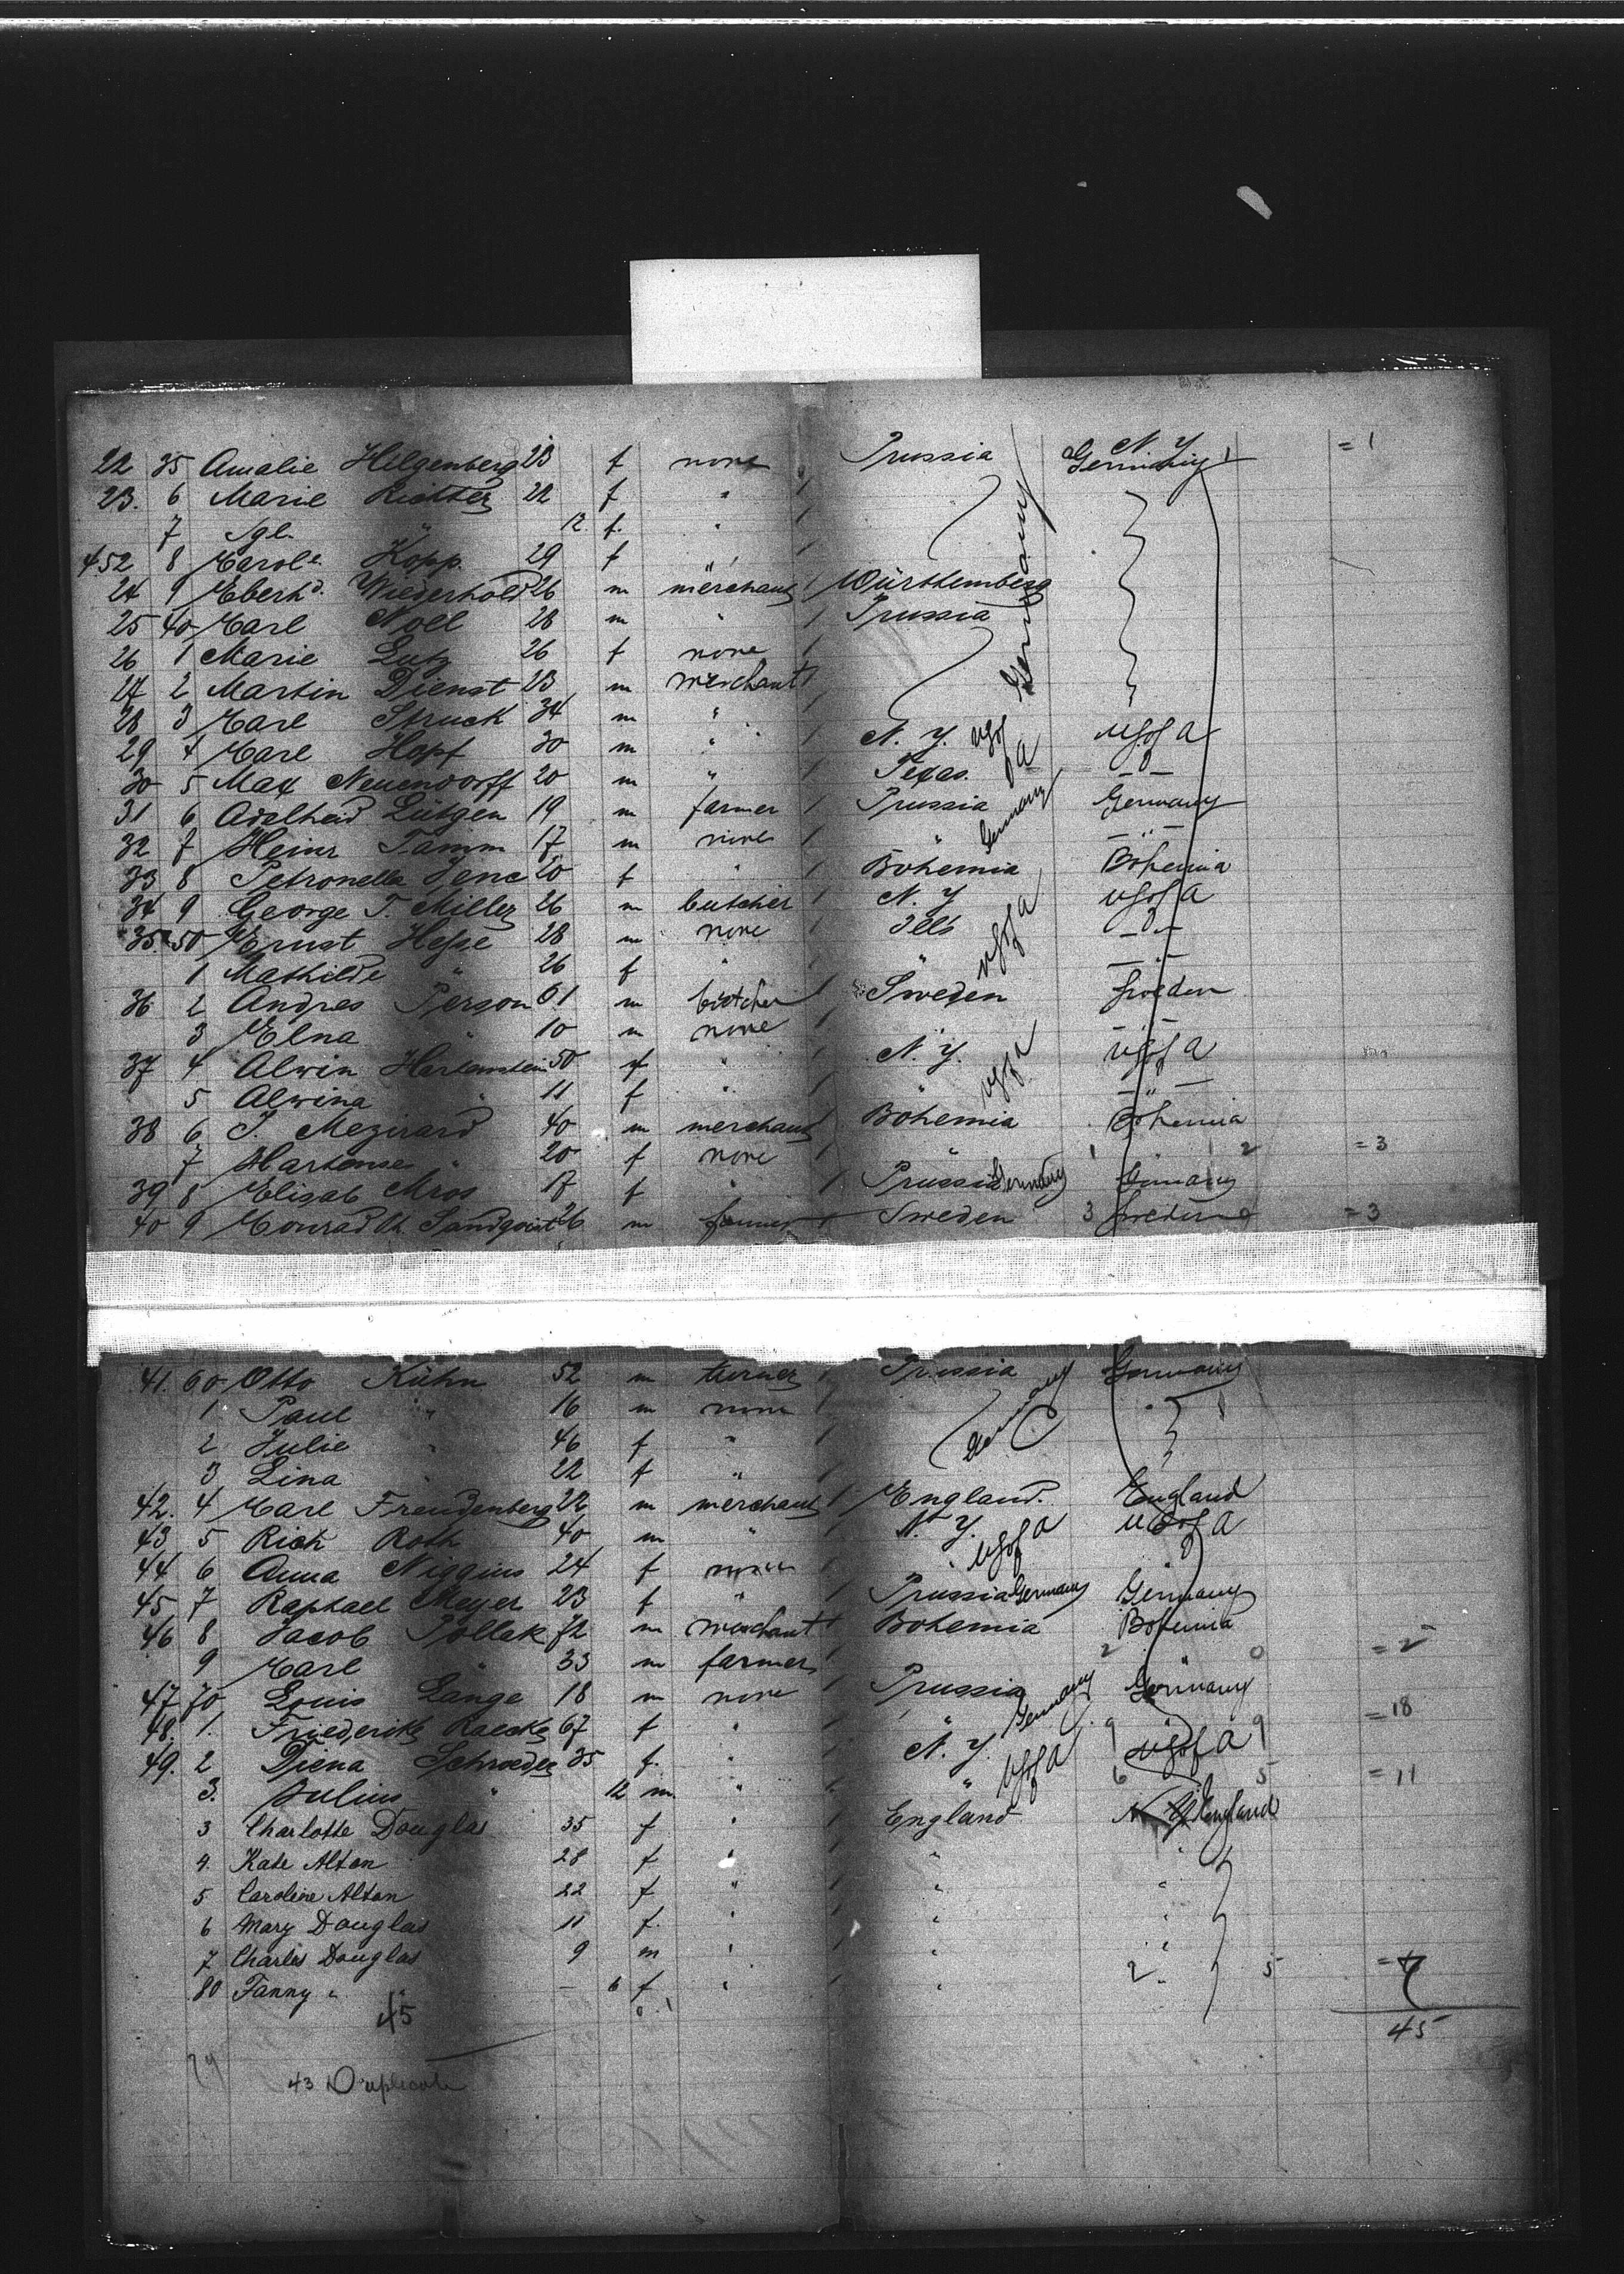 22 35 Amalie Hilgenberg 23 f none Prussia N. Y. Germany 1 = 1
23. 6 Marie Richter 22 f " 1
7 Igl. " 12. f. " 1
452 8 Carol. Kopp. 29 f 1
24 9 Eberhd. Wiederhold 26 m merchant 1 Württemberg
25 40 Carl Noll 28 m " 1 Prussia Germany
26 1 Marie Lutz 26 f none 1
27 2 Martin Dienst 23 m merchant 1
28 3 Carl Struck 34 m " 1
29 4 Carl Hopf 30 m " 1 N. Y. US of A US of A
30 5 Max Neuendorff 20 m " 1 Texas. — " —
31 6 Adelheid Lütgen 19 m farmer 1 Prussia Germany Germany
32 7 Heinr Tamm 17 m none 1 " — " —
33 8 Petronella 20 f " 1 Bohemia Bohemia
34 9 George T. Miller 26 m butcher 1 N. Y. US of A
35. 50 Ernst Hesse 28 m none 1 Ills US of A — " —
1 Mathilde " 26 f " 1 " — " —
36 2 Andres Person 01 m butcher 1 Sweden Sweden
3 Elna " 10 m none 1 — " —
37 4 Alwin Hartenstein 50 f " 1 N. Y. US of A US of A
5 Alwina " 11 f " 1 " — " —
38 6 J. Mezirard 40 m merchant Bohemia Bohemia
7 Hartense " 20 f none 1 " 1 2 = 3
39 8 Elisab Mros 17 f " 1 Prussia Germany Germany
40 9 Conrad Ch. Sandqvist 26 m farmer 1 Sweden 3 Sweden = 3
41. 60 Otto Kühn 52 m turner 1 Prussia Germany
1 Paul " 16 m none 1 Germany
2 Julie " 46 f " 1
3 Lina " 22 f " 1
42. 4 Carl Freudenberg 22 m merchant 1 England. England
43 5 Rich Roth 40 m " N. Y. US of A US of A
44 6 Anna Niggins 24 f none 1 " "
45 7 Raphael Meyer 23 f " 1 Prussia Germany Germany
46 8 Jacob Pollak 72 m merchant 1 Bohemia Bohemia
9 Carl " 33 m farmer 1 2 0 = 2
47 70 Louis Lange 18 m none 1 Prussia Germany Germany
48. 1. Friederike Raecke 67 f " 1 " 9 " 9 = 18
49. 2 Diena Schroeder 35 f. " 1 N. Y. US of A US of A
3. Julius " 12 m. " 1 " 6 5 = 11
3 Charlotte Douglas 35 f " 1 England England
4. Kate Alton 28 f " 1 " "
5 Caroline Alton 22 f " 1 " "
6 Mary Douglas 11 f. " 1 " "
7 Charles Douglas 9 m " 1 " "
80 Fanny " — 6 f " 1 " 2 5 = 7
45 45
43 Duplicate